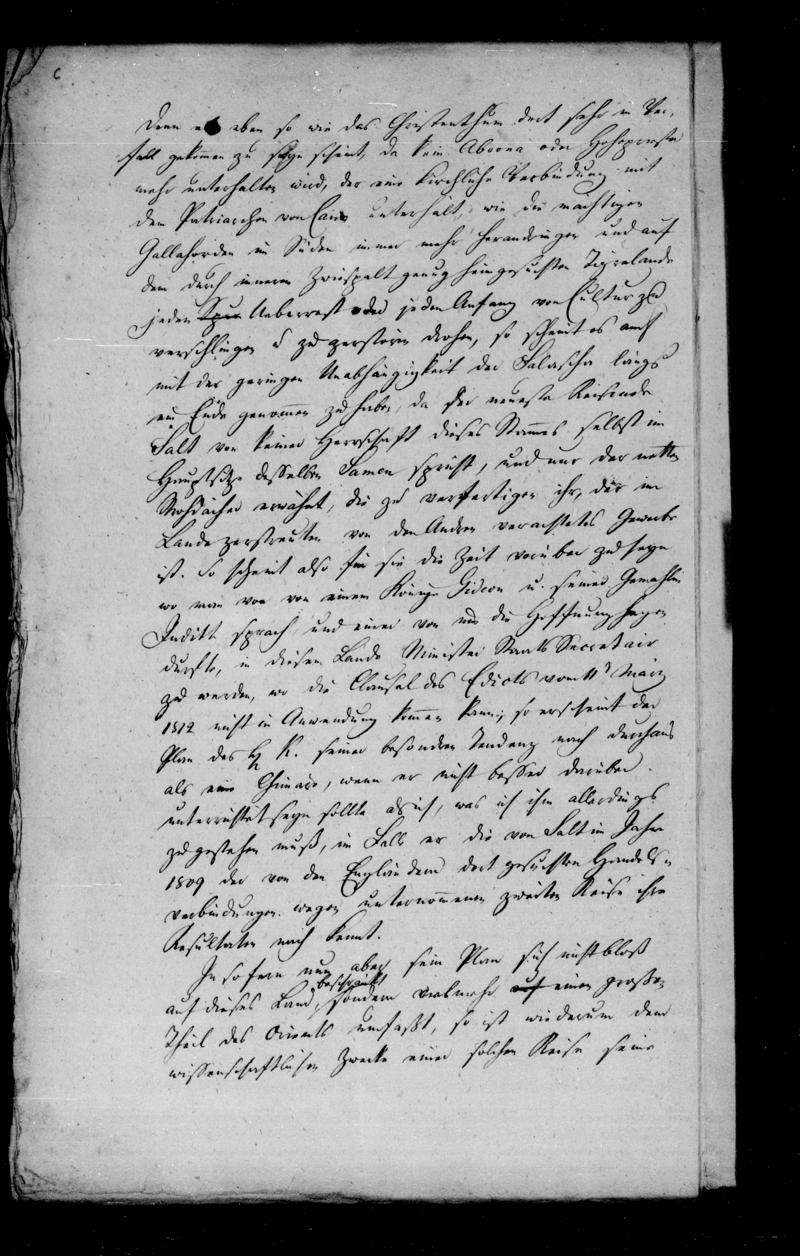 denn es eben so wie das Christenthum dort sehr in Ver-
fall gekommen zu seyn scheint, da kein Aboona oder Hohepriester
mehr unterhalten wird, der eine kirchliche Verbindung mit
den Patriarchen von Cairo unterhält, wie die mächtigen
Gallahorden im Süden immer mehr herandringen und auf
dem durch inneren Zwiespalt genug heimgesuchten Tigrelande
jeden Spur Ueberrest oder jeden Anfang von Cultur zu
verschlingen u zu zerstören drohen, so scheint es auch
mit der geringen Unabhängigkeit der Falascha längst
ein Ende genommen zu haben, da der neueste Reisende
Salt von keiner Herrschaft dieses Stammes selbst im
Hauptsitze desselben Samen spricht, und nur der netten
Rohdächer erwähnt, die zu verfertigen ihr, die im
Lande zerstreuten von den Andren verachtetes Gewerbe
ist. So scheint also für sie die Zeit vorüber zu seyn
wo man von von einem Könige Gideon u. seiner Gemahlin
Juditt sprach, und einer von uns die Hoffnung hegen
durfte, in diesem Lande Minister Staats Secretair
zu werden, wo die Clausel des Edicts vom 11t März
1812 nicht in Anwendung kommen kann; so erscheint der
Plan des H R. seiner besondren Tendenz nach durchaus
als eine Chimäre, wenn er nicht besser darüber
unterrichtet seyn sollte als ich, was ich ihm allerdings
zugestehen muß, im Fall er die von Salt im Jahre
1809 der von den Engländern dort gesuchten Handels-
verbindungen wegen unternommenen zweiten Reise ihre
Resultaten nach kennt.
In sofern nun aber sein Plan sich nicht bloß
beschränkt
auf dieses Land, sondern vielmehr auf einen großen
Theil des Orients umfaßt, so ist wiederum dem
wissenschaftlichen Zwecke einer solchen Reise seine